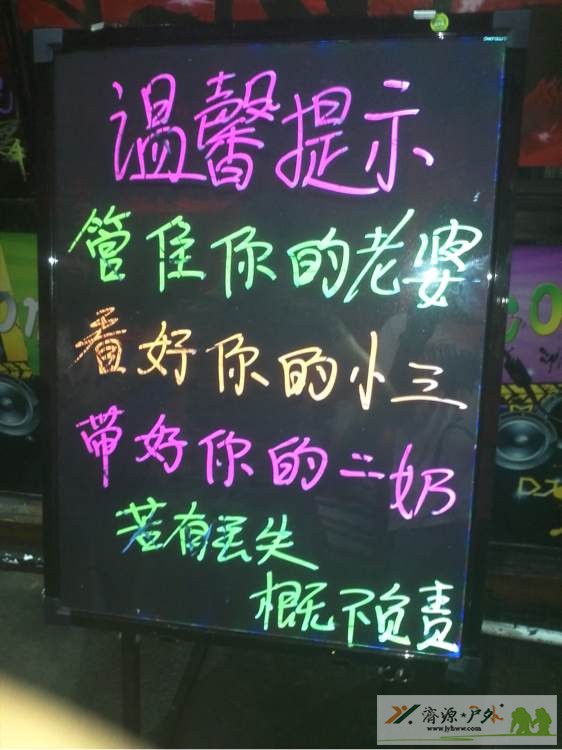 温馨提示
管住你的老婆
看好你的小三
带好你的二奶
若有丢失
概不负责
DJ
济源★户外
www.jyhww.com